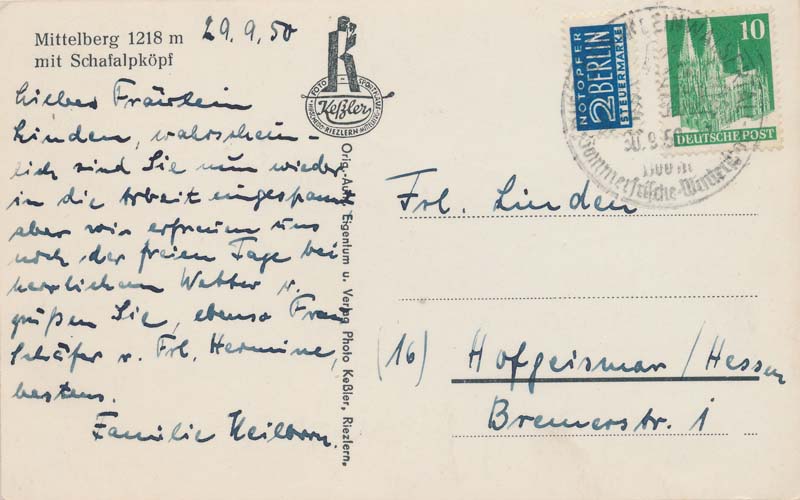 Mittelberg 1218 m
mit Schafalpköpf
29.9.50
Liebes Fräulein
Linden, wahrschein-
lich sind Sie nun wieder
in die Arbeit eingespannt
aber wir erfreuen uns
noch der freien Tage bei
herrlichem Wetter u.
grüßen Sie, ebenso Frau
Schäfer u. Frl. Hermine,
bestens.
Familie Heilborn.
Keßler
Orig.-Aufn. Eigentum u. Verlag Photo Keßler, Riezlern.
NOTOPFER
2 BERLIN
STEUERMARKE
10
DEUTSCHE POST
30.9.50
1100 m
Sommerfrische-
Frl. Linden
(16) Hofgeismar/Hessen
Bremerstr. 1